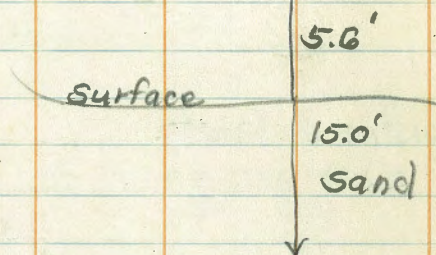 5.6'
Surface
15.0'
Sand